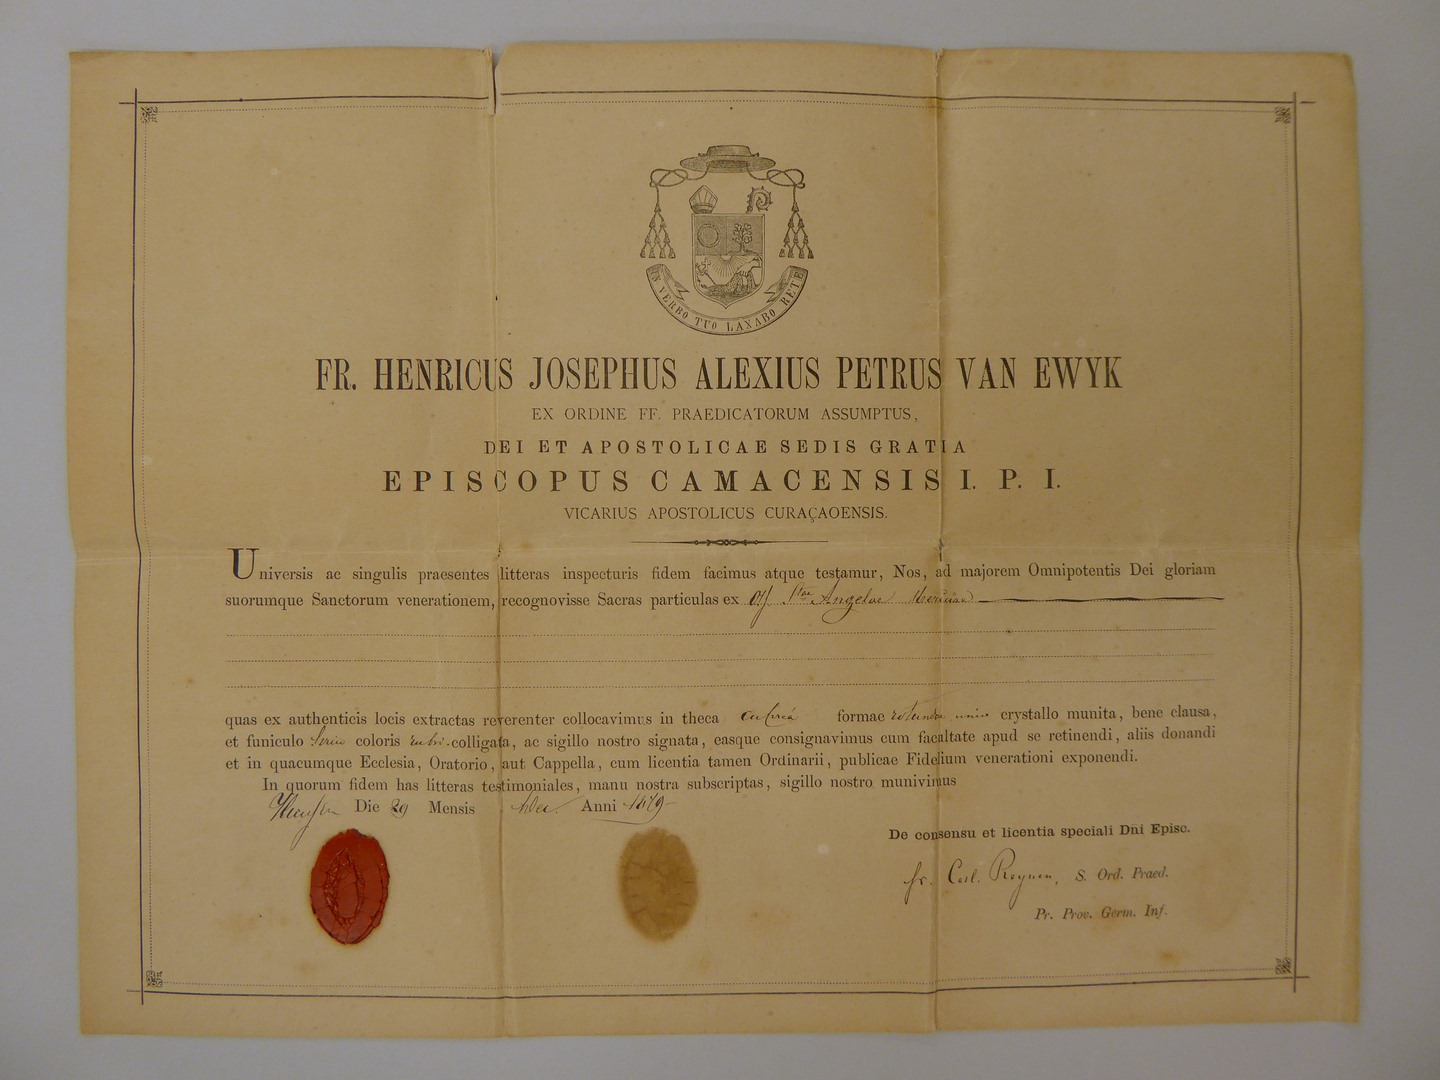 IN VERBO TUO LAXABO RETE
FR. HENRICUS JOSEPHUS ALEXIUS PETRUS VAN EWYK
EX ORDINE FF. PRAEDICATORUM ASSUMPTUS,
DEI ET APOSTOLICAE SEDIS GRATIA
EPISCOPUS CAMACENSIS I. P. I.
VICARIUS APOSTOLICUS CURAÇAOENSIS.
Universis ac singulis praesentes litteras inspecturis fidem facimus atque testamur, Nos, ad majorem Omnipotentis Dei gloriam
suorumque Sanctorum venerationem, recognovisse Sacras particulas ex Stae Angelae
quas ex authenticis locis extractas reverenter collocavimus in theca formae rotundae unico crystallo munita, bene clausa,
et funiculo serico coloris rubri colligata, ac sigillo nostro signata, easque consignavimus cum facultate apud se retinendi, aliis donandi
et in quacumque Ecclesia, Oratorio, aut Cappella, cum licentia tamen Ordinarii, publicae Fidelium venerationi exponendi.
In quorum fidem has litteras testimoniales, manu nostra subscriptas, sigillo nostro munivimus
Die 29 Mensis Anni 1879
De consensu et licentia speciali Dni Episc.
fr. S. Ord. Praed.
Pr. Prov. Germ. Inf.